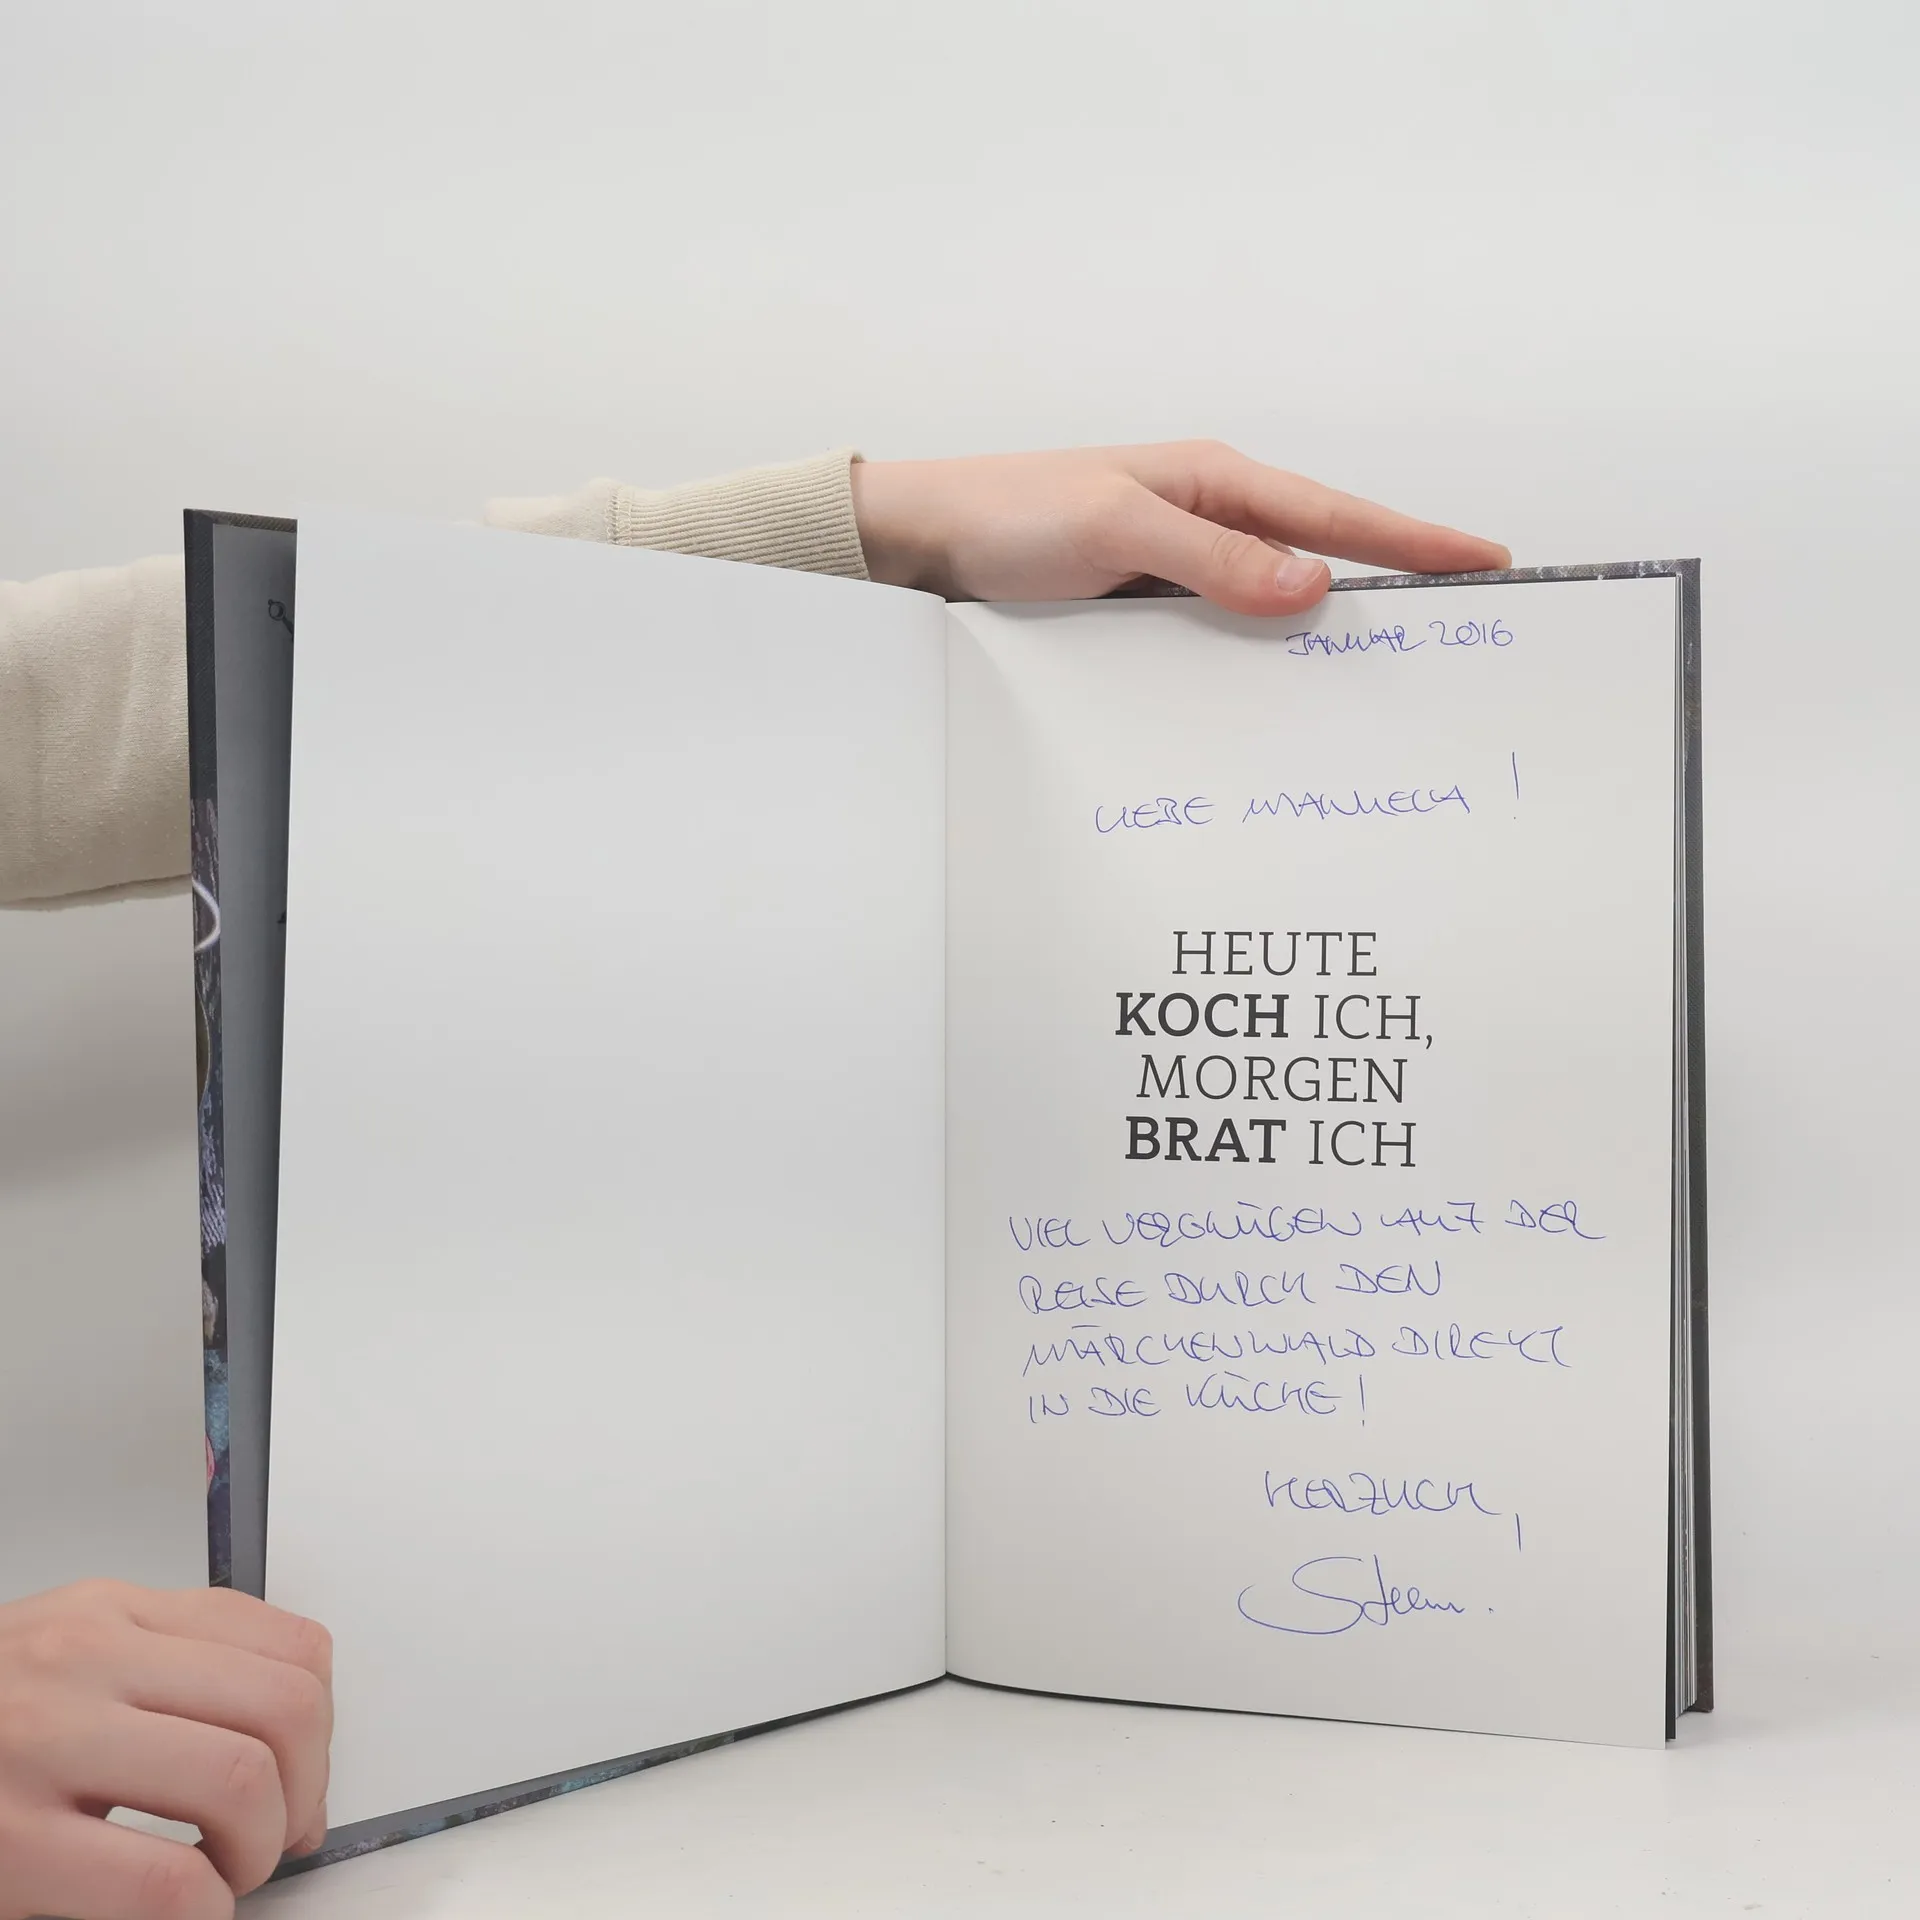 JANUAR 2016
LIEBE MANUELA !
HEUTE
KOCH ICH,
MORGEN
BRAT ICH
VIEL VERGNÜGEN AUF DER
REISE DURCH DEN
MÄRCHENWALD DIREKT
IN DIE KÜCHE!
HERZLICH,